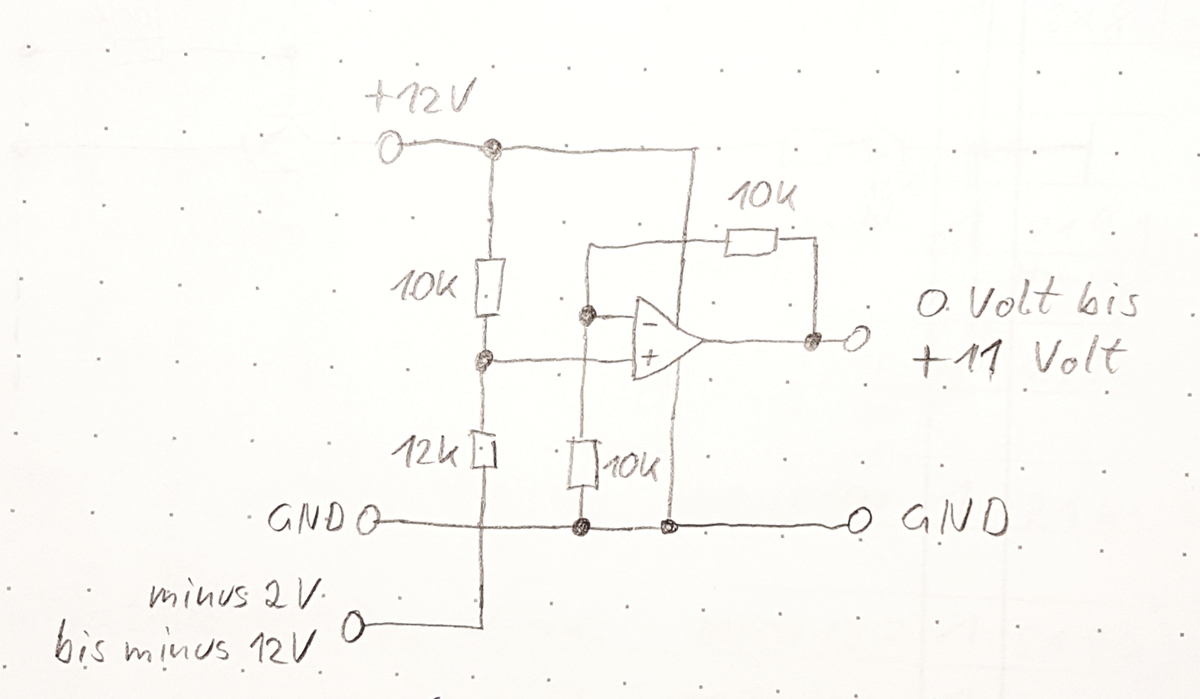 +12V
10k
10k
0 Volt bis
+11 Volt
-
+
12k
10k
GND
GND
minus 2V
bis minus 12V